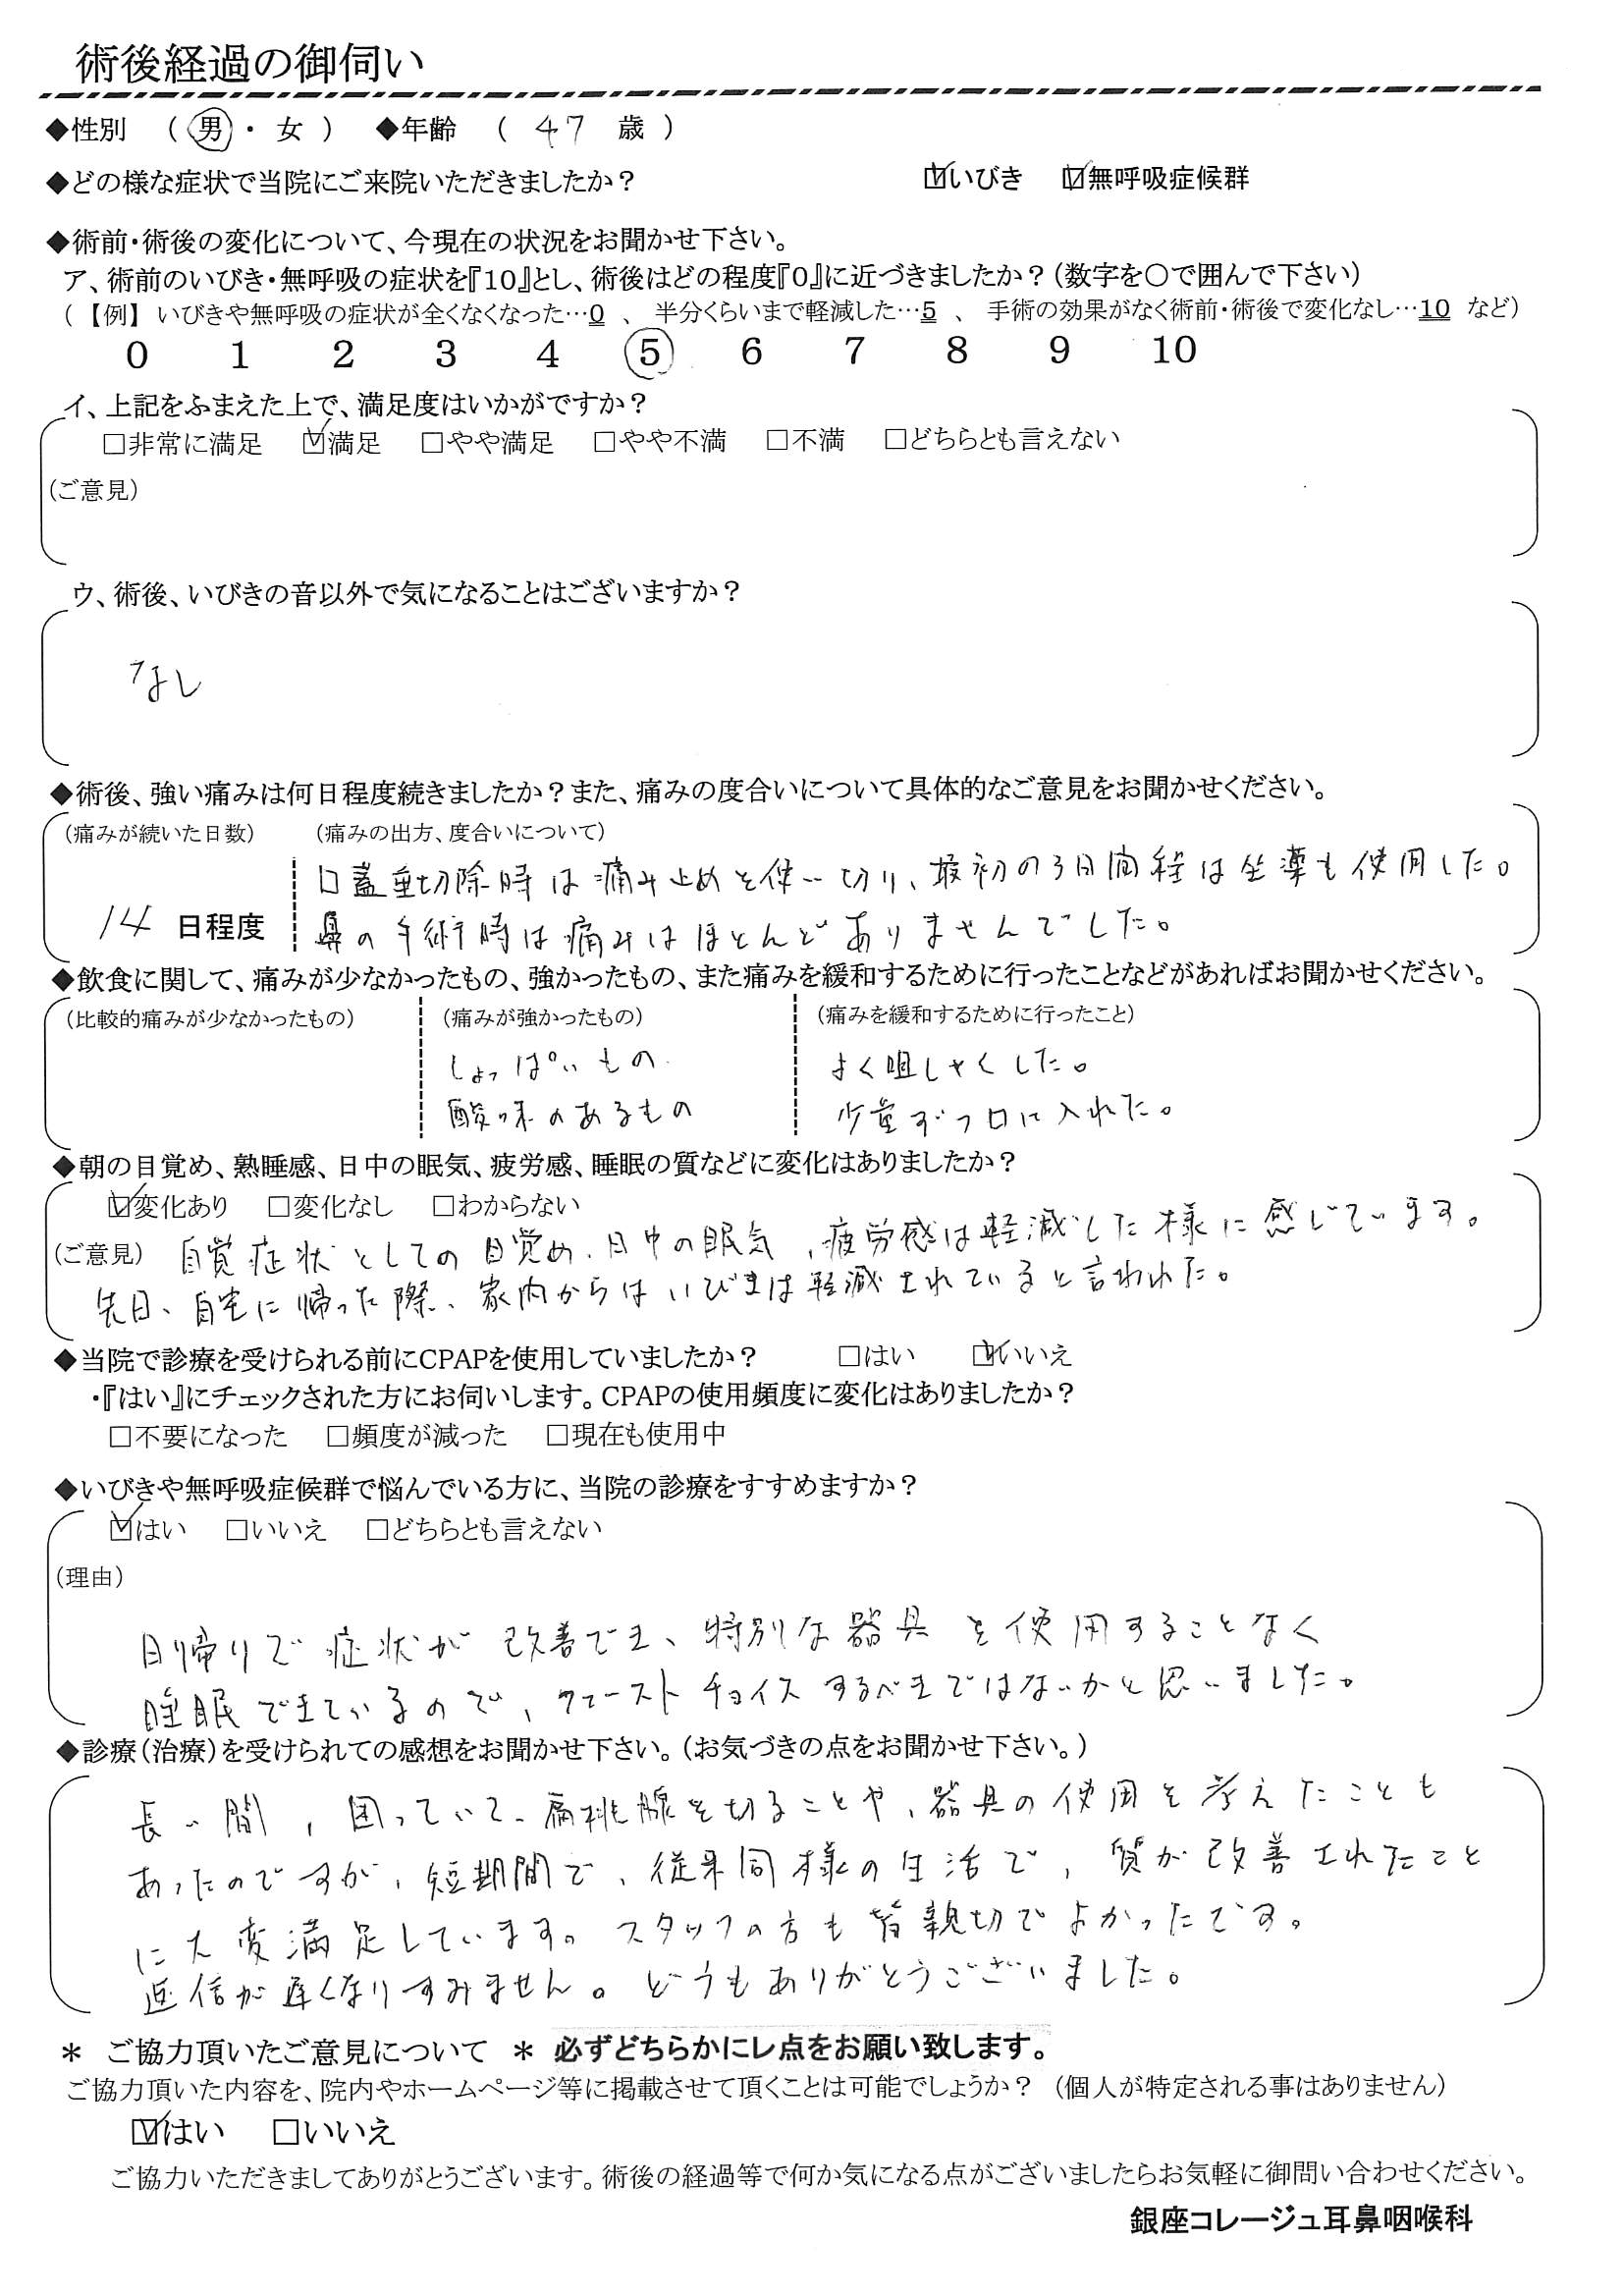 術後経過の御伺い
◆性別 ( 男 ・ 女 ) ◆年齢 ( 47 歳 )
◆どの様な症状で当院にご来院いただきましたか? ☑いびき ☑無呼吸症候群
◆術前・術後の変化について、今現在の状況をお聞かせ下さい。
ア、術前のいびき・無呼吸の症状を『10』とし、術後はどの程度『0』に近づきましたか?(数字を〇で囲んで下さい)
(【例】いびきや無呼吸の症状が全くなくなった…0 、 半分くらいまで軽減した…5 、 手術の効果がなく術前・術後で変化なし…10 など)
0 1 2 3 4 5 6 7 8 9 10
イ、上記をふまえた上で、満足度はいかがですか?
□非常に満足 ☑満足 □やや満足 □やや不満 □不満 □どちらとも言えない
(ご意見)
ウ、術後、いびきの音以外で気になることはございますか?
なし
◆術後、強い痛みは何日程度続きましたか?また、痛みの度合いについて具体的なご意見をお聞かせください。
(痛みが続いた日数) (痛みの出方、度合いについて)
口蓋垂切除時は痛み止めを使い切り、最初の3日間程は坐薬も使用した。
14 日程度 鼻の手術時は痛みはほとんどありませんでした。
◆飲食に関して、痛みが少なかったもの、強かったもの、また痛みを緩和するために行ったことなどがあればお聞かせください。
(比較的痛みが少なかったもの) (痛みが強かったもの) (痛みを緩和するために行ったこと)
しょっぱいもの よく咀しゃくした。
酸味のあるもの 少量ずつ口に入れた。
◆朝の目覚め、熟睡感、日中の眠気、疲労感、睡眠の質などに変化はありましたか?
☑変化あり □変化なし □わからない
(ご意見) 自覚症状としての目覚め、日中の眠気、疲労感は軽減した様に感じています。
先日、自宅に帰った際、家内からはいびきは軽減されていると言われた。
◆当院で診療を受けられる前にCPAPを使用していましたか? □はい ☑いいえ
・『はい』にチェックされた方にお伺いします。CPAPの使用頻度に変化はありましたか?
□不要になった □頻度が減った □現在も使用中
◆いびきや無呼吸症候群で悩んでいる方に、当院の診療をすすめますか?
☑はい □いいえ □どちらとも言えない
(理由)
日帰りで症状が改善でき、特別な器具を使用することなく
睡眠できているので、ファーストチョイスするべきではないかと思いました。
◆診療(治療)を受けられての感想をお聞かせ下さい。(お気づきの点をお聞かせ下さい。)
長い間、困っていて、扁桃腺を切ることや、器具の使用を考えたことも
あったのですが、短期間で、従来同様の生活で、質が改善されたこと
に大変満足しています。スタッフの方も皆親切でよかったです。
返信が遅くなりすみません。どうもありがとうございました。
＊ ご協力頂いたご意見について ＊ 必ずどちらかにレ点をお願い致します。
ご協力頂いた内容を、院内やホームページ等に掲載させて頂くことは可能でしょうか? (個人が特定される事はありません)
☑はい □いいえ
ご協力いただきましてありがとうございます。術後の経過等で何か気になる点がございましたらお気軽に御問い合わせください。
銀座コレージュ耳鼻咽喉科